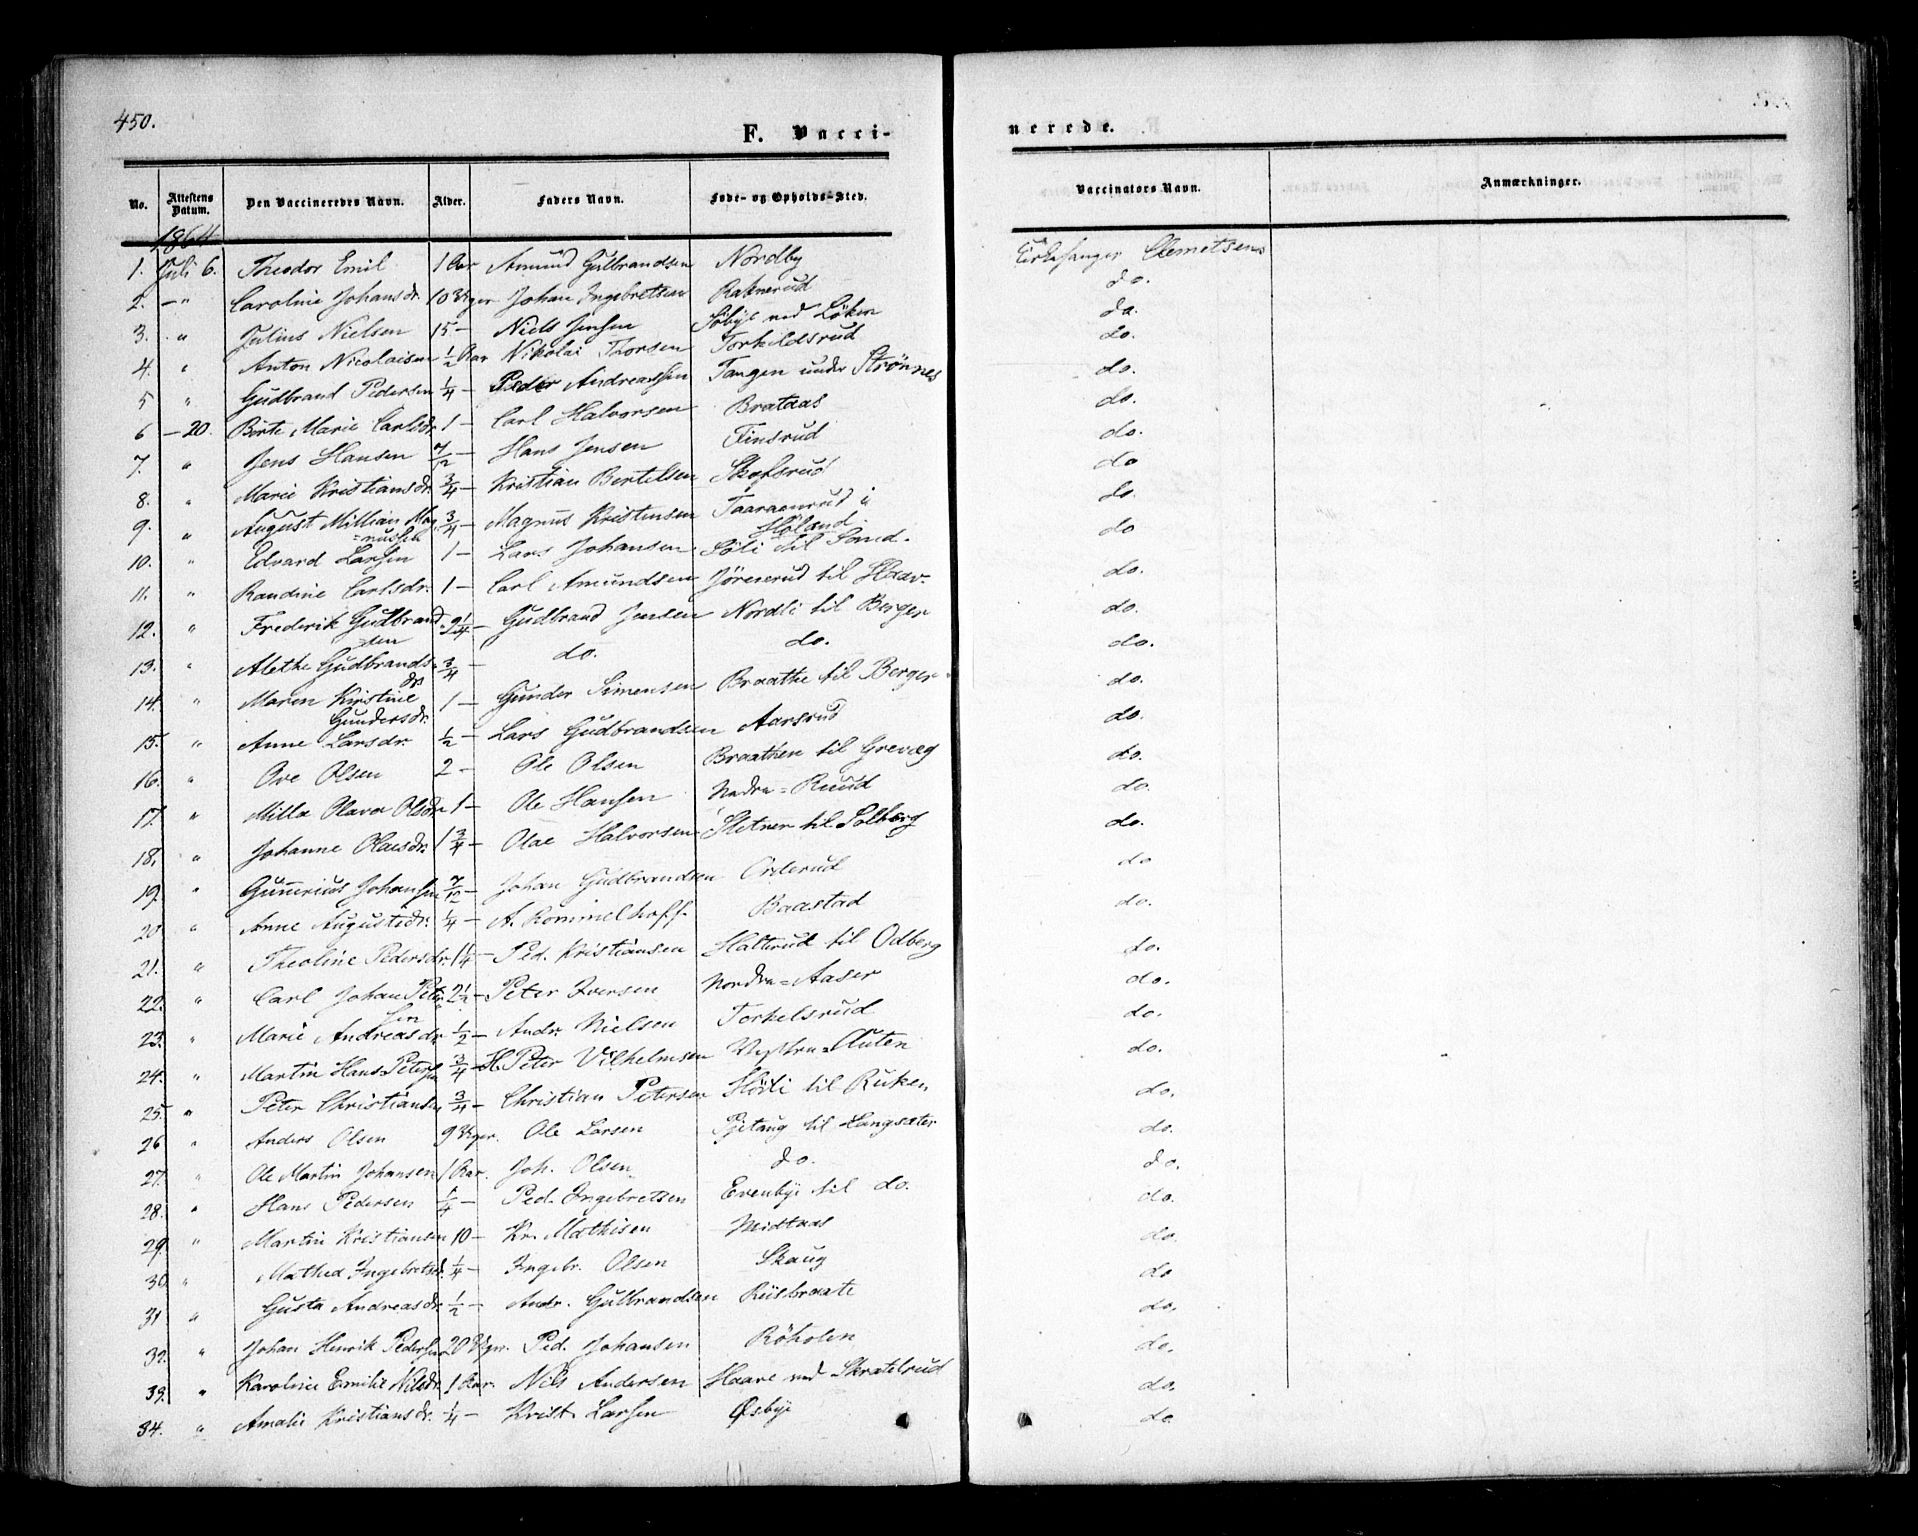 450.
F. Vacci-
nerede.
No. Attestens Datum. Den Vaccineredes Navn. Alder. Faders Navn. Føde- og Opholds-Sted. Vaccinators Navn. Anmærkninger.
1864
1. Juli 6. Theodor Emil 1 Aar Amund Gulbrandsen Nordby Kirkesanger Clemetsen
2. — " Caroline Johansdr. 10 Uger Johan Ingebretsen Raknerud do.
3. " Julius Nielsen 15 — Niels Jensen Løken do.
4. " Anton Nicolaisen ½ Aar Nikolai Thorsen Torkildsrud do.
5 " Gudbrand Pedersen ¼ — Peder Andreassen Tangen under Strønnes do.
6 — 20. Birte Marie Carlsdr. 1 — Carl Halvorsen Brataas do.
7. " Jens Hansen 7/12 — Hans Jensen Finsrud do.
8. " Marie Kristiansdr. ¾ — Kristian Bertelsen Skofsrud do
9. " August Millian Mag=nussen ¾ — Magnus Kristensen Taaraanrud i Høland do.
10. " Edvard Larsen 1 — Lars Johansen Søli til Sand. do
11. " Randine Carlsdr. 1 — Carl Amundsen Jøreserud til Haav. do.
12. " Frederik Gudbrandsen 9¼ — Gudbrand Jensen Nordli til Berger do.
13. " Alethe Gudbrandsdr ¾ — do. do. do.
14. " Maren Kirstine Gundersdr. 1 — Gunder Simensen Braathe til Berger do.
15. " Anne Larsdr. ½ — Lars Gudbrandsen Aarsrud do.
16. " Ove Olsen 2 — Ole Olsen Braathen til Grevæg do.
17. " Milla Olava Olsdr 1 — Ole Hansen Nedre=Ruud do.
18. " Johanne Olaesdr. 1¾ — Olae Halvorsen Sletner til Solberg do.
19. " Gunerius Johansen 7/12 — Johan Gudbrandsen Orderud do
20 " Anne Augustsdr. ¼ — A. Rommelhoff. Baastad do.
21. " Theoline Pedersdr. 1¼ — Ped. Kristiansen Halterud til Odberg do.
22. " Carl Johan Petersen 2½ — Peter Iversen Nordre=Aaser do.
23. " Marie Andreasdr. ½ — Andr. Nielsen Torkelsrud do.
24. " Martin Hans Petersen ¾ — H. Peter Vilhelmsen Vestre=Auten do.
25 " Peter Christiansen ¾ — Christian Petersen til Ruken do.
26 " Anders Olsen 9 Uger. Ole Larsen til Langsæter do.
27. " Ole Martin Johansen 1 Aar. Joh. Olsen do. do.
28. " Hans Pedersen ¼ — Ped. Ingebretsen Evenbye til do. do.
29. " Martin Kristiansen 10 — Kr. Mathisen Midtaas do.
30. " Mathea Ingebretsdr. ¼ — Ingebr. Olsen Skaug do
31 " Gusta Andreasdr. ½ — Andr. Gulbrandsen Riisbraate do.
32. " Johan Henrik Pedersen 20 Uger. Ped. Johansen Röholen do.
33. " Karoline Emilie Nilsdr. 1 Aar. Nils Andersen Haare ved Skratelrud do.
34. " Amalie Kristiansdr. ¼ — Krist. Larsen Øsbye do.